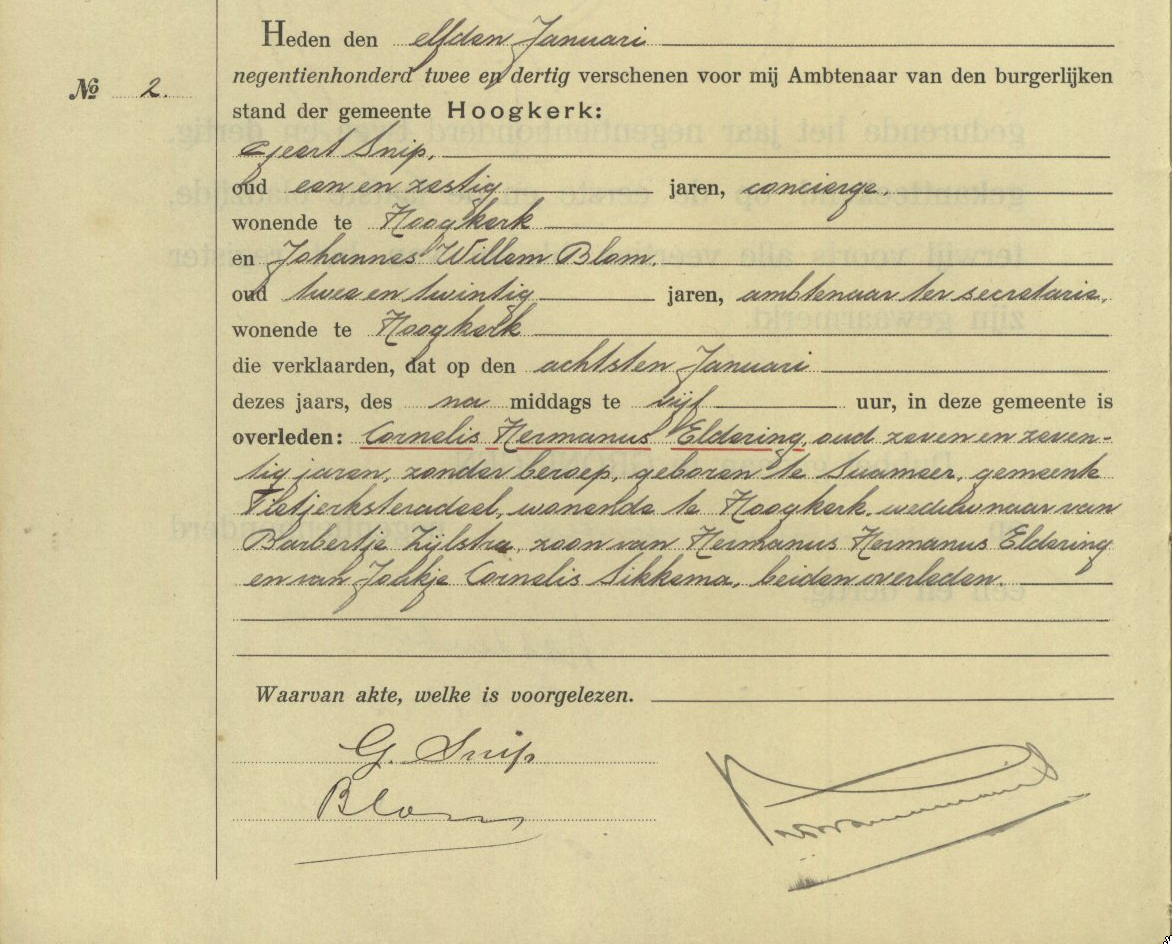 Heden den elfden Januari
negentienhonderd twee en dertig verschenen voor mij Ambtenaar van den burgerlijken
№ 2.
stand der gemeente Hoogkerk:
Geert Snip,
oud een en zestig jaren, concierge,
wonende te Hoogkerk
en Johannes Willem Blom,
oud twee en twintig jaren, ambtenaar ter secretarie,
wonende te Hoogkerk
die verklaarden, dat op den achtsten Januari
dezes jaars, des na middags te vijf uur, in deze gemeente is
overleden: Cornelis Hermanus Eldering, oud zeven en zeven-
tig jaren, zonder beroep, geboren te Suameer, gemeente
Tietjerksteradeel, wonende te Hoogkerk, weduwnaar van
Barbertje Zijlstra, zoon van Hermanus Hermanus Eldering
en van Jeltje Cornelis Sikkema, beiden overleden.
Waarvan akte, welke is voorgelezen.
G. Snip
Blom